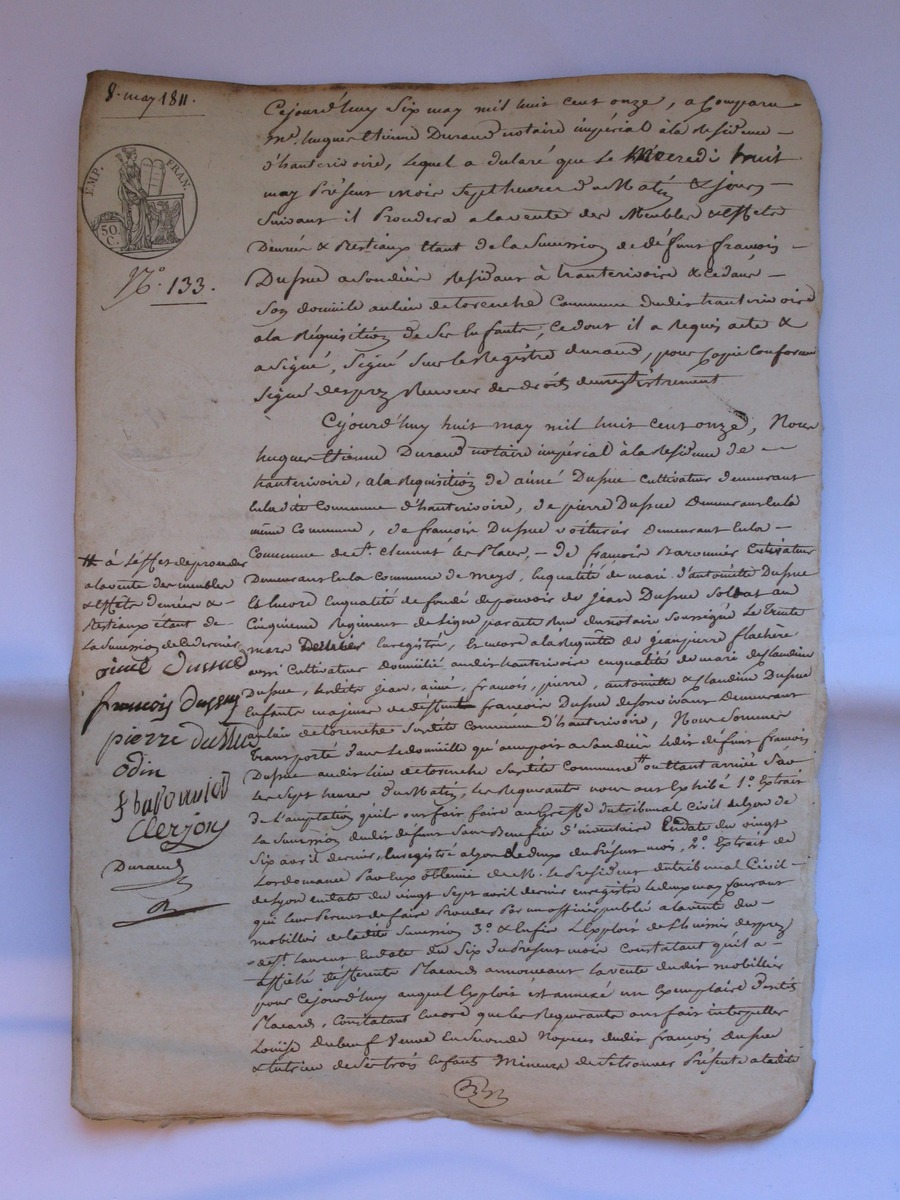 8. may 1811.
EMP. FRAN.
50. C.
N.° 133.
Cejourd'huy Six may mil huit cent onze, a Comparu
M.e hugues Etienne Durand notaire impérial à la Residence
d'hauterivoire, lequel a declaré que le Mercredi huit
may Présent mois Sept heures du Matin & jours
Suivant il Procedera a la vente des Meubles & effets
Denrées & Bestiaux Etant de la Succession de défunt francois
Dupuc a Son décès Residant à hauterivoire & ce dans
Son domicile au lieu de torenche Commune dudit hauterivoire
a la Réquisition de Ses Enfants, ce dont il a Requis acte &
a Signé, Signé Sur le Registre durand, pour Copie Conforme
Signé desprez Receveur des droits d'enregistrement
Cejourd'huy huit may mil huit cent onze, Nous
hugues Etienne Durand notaire impérial à la Residence de
hauterivoire, a la Requisition de aimé Dupuc Cultivateur demeurant
en la dite Commune d'hauterivoire, de pierre Dupuc Demeurant en la
même Commune, de francois Dupuc voiturier Demeurant en la
Commune de S.t Clement les Places, de francois Baronnier Cultivateur
Demeurant en la Commune de Meys, En qualité de mari d'antoinette Dupuc
Et Encore En qualité de fondé de pouvoir de Jean Dupuc Soldat au
Cinquieme Regiment de Ligne par acte Reçu du notaire Soussigné le trente
mars Dernier Enregistré, Et encore a la Requête de jean pierre flachère
aussi Cultivateur domicilié audit hauterivoire en qualité de mari de Claudine
Dupuc, Lesdits jean, aimé, francois, pierre, antoinette & Claudine Dupuc
Enfants majeurs de défunt francois Dupuc de Son vivant Demeurant
au lieu de torenche Susdite Commune d'hauterivoire, Nous Sommes
transporté dans le domicille qu'occupoit a Son décès ledit défunt francois
Dupuc audit lieu de torenche Susdite Commune # ou etant arrivés Sur
les Sept heures du Matin, les Requerants nous ont Exhibé 1.° Extrait
de l'acceptation qu'ils ont fait faire au Greffe du tribunal Civil de Lyon de
la Succession dudit défunt Sous Benefice d'inventaire En date du vingt
Six avril dernier, Enregistré a Lyon le deux du Présent mois, 2.° Extrait de
L'ordonnance Par Eux obtenue de M. le President du tribunal Civil
de Lyon en date du vingt Sept avril dernier enregistré le deux may Courant
qui leur Permet de faire Proceder Par un officier public a la vente du
mobilier de ladite Succession 3.° & Enfin L'Exploit de L'huissier desprez
de S.t Laurent En date du Six du présent mois Constatant qu'il a
affiché differents Placards annonçant la vente dudit mobillier
pour Cejourd'huy auquel Exploit est annexé un Exemplaire desdits
Placards, Constatant Encore que les Requerants ont fait interpeller
Louise Dubeuf Veuve En Seconde Nopces dudit francois Dupuc
& tutrice de Ses trois Enfants Mineurs de Se trouver Présente a ladite
# à L'effet de proceder
a la vente des meubles
& effets denrées &
Bestiaux etant de
La Succession de ce dernier
aimé Dupuc
francois Dupuy
pierre dupuc
odin
f baronnier
Clerjon
Durand